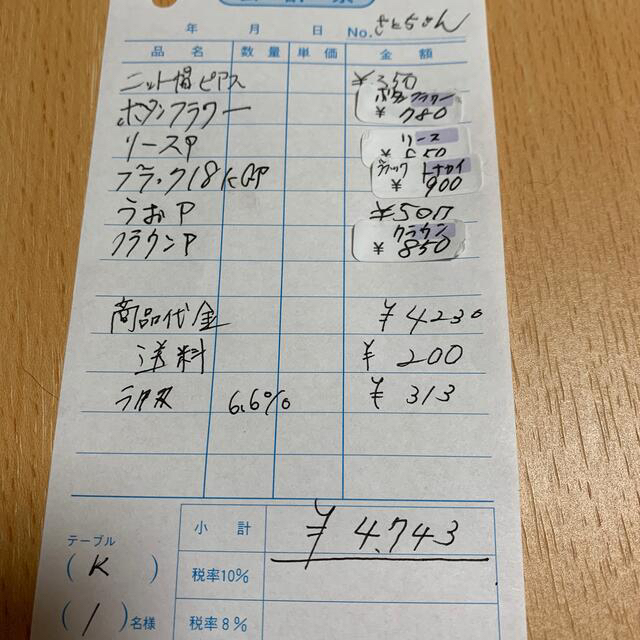 年 月 日 No. さとちゃん
品名 数量 単価 金額
ニット帽ピアス ¥350
ボタンフラワー ボタンフラワー ¥780
リースP リース ¥ 550
ブラック18KGP ブラック トナカイ ¥900
うおP ¥500
クラウンP クラウン ¥850
商品代金 ¥4230
送料 ¥ 200
6.6% ¥ 313
小計 ¥4,743
テーブル
( K ) 税率10%
( 1 ) 名様 税率8%